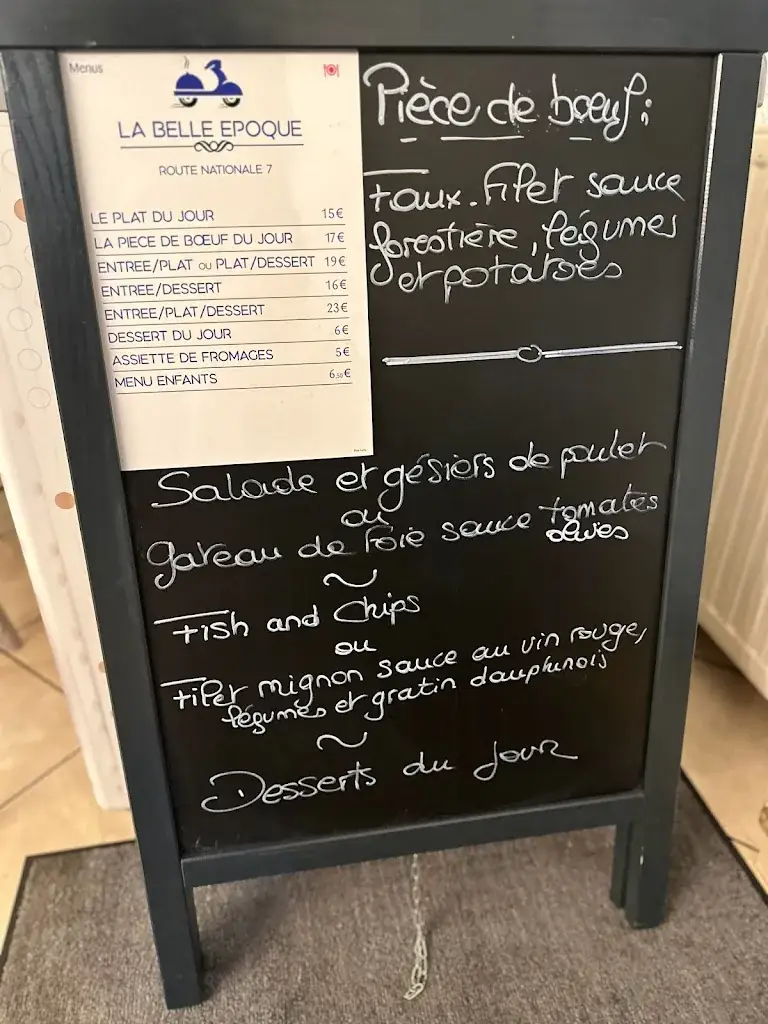 Menus
LA BELLE EPOQUE
ROUTE NATIONALE 7
LE PLAT DU JOUR 15€
LA PIECE DE BŒUF DU JOUR 17€
ENTREE/PLAT OU PLAT/DESSERT 19€
ENTREE/DESSERT 16€
ENTREE/PLAT/DESSERT 23€
DESSERT DU JOUR 6€
ASSIETTE DE FROMAGES 5€
MENU ENFANTS 6,50€
Pièce de bœuf:
Faux-Filet sauce
forestière, légumes
et potatoes
Salade et gésiers de poulet
ou
gateau de foie sauce tomates
olives
~
Fish and Chips
ou
Filet mignon sauce au vin rouge,
légumes et gratin dauphinois
~
Desserts du jour